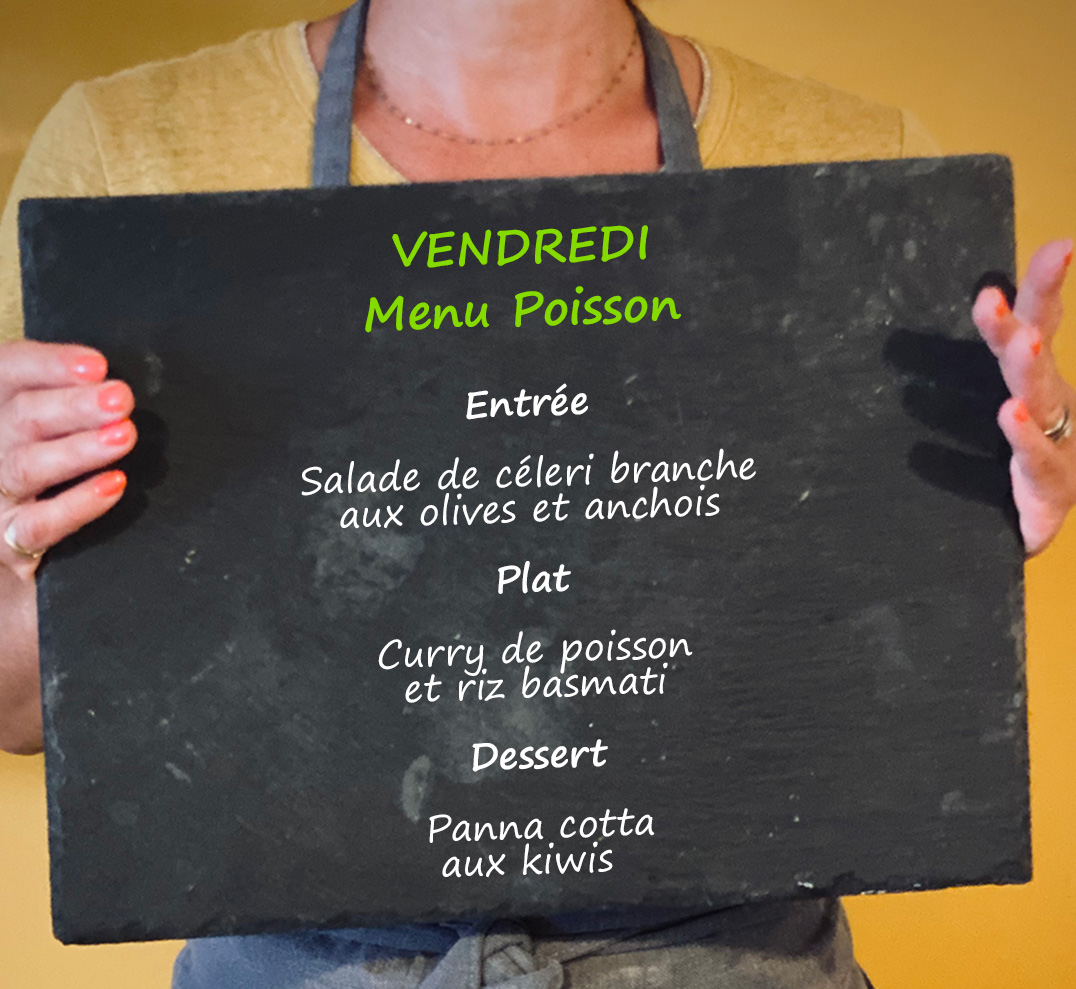 VENDREDI
Menu Poisson
Entrée
Salade de céleri branche
aux olives et anchois
Plat
Curry de poisson
et riz basmati
Dessert
Panna cotta
aux kiwis